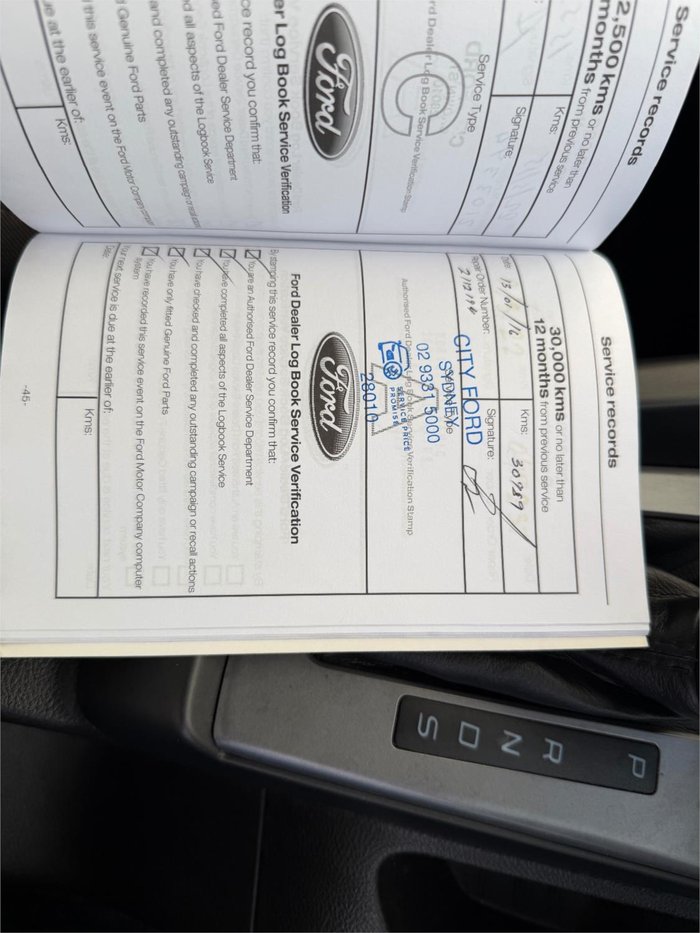 Service records
2,500 kms or no later than
months from previous service
Kms:
Signature:
Service Type
C
rd Dealer Log Book Service Verification Stamp
Ford
er Log Book Service Verification
ce record you confirm that:
ed Ford Dealer Service Department
d all aspects of the Logbook Service
and completed any outstanding campaign or recall actions
Genuine Ford Parts
this service event on the Ford Motor Company
ue at the earlier of:
Kms:
Service records
30,000 kms or no later than
12 months from previous service
Date: 13/01/16
Kms: 30989
Repair Order Number:
Signature:
CITY FORD
SYDNEY
02 9331 5000
Authorised Ford Dealer Log Book Service Verification Stamp
SERVICE PRICE
PROMISE
28010
A
Ford
Ford Dealer Log Book Service Verification
By stamping this service record you confirm that:
You are an Authorised Ford Dealer Service Department
You have completed all aspects of the Logbook Service
You have checked and completed any outstanding campaign or recall actions
You have only fitted Genuine Ford Parts
You have recorded this service event on the Ford Motor Company computer
system
Your next service is due at the earlier of:
Date:
Kms:
-45-
P
R
N
D
S